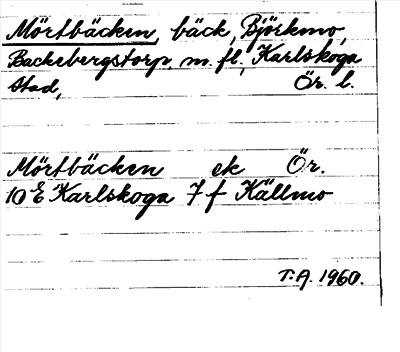 Mörtbäcken, bäck, Björkmo,
Backebergstorp, m. fl., Karlskoga
stad, Ör. l.
Mörtbäcken ek Ör.
10 E Karlskoga 7 f Källmo
T.A. 1960.